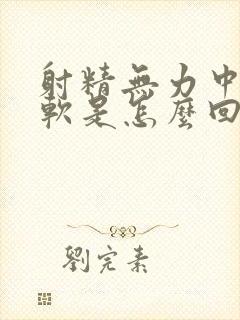 射精無力中
軟是怎麼回
劉完素